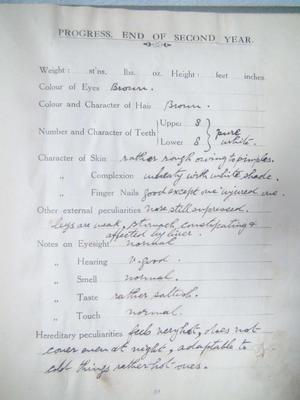 PROGRESS. END OF SECOND YEAR.
Weight: st'ns. lbs. oz. Height: feet inches.
Colour of Eyes Brown.
Colour and Character of Hair Brown.
Number and Character of Teeth { Upper 8
Lower 8 } pure white.
Character of Skin rather rough owing to pimples.
„ Complexion wheaty with white shade.
„ Finger Nails good except one injured one.
Other external peculiarities nose still supressed.
legs are weak, stomach constipating &
affected by liver.
Notes on Eyesight normal
„ Hearing V. good.
„ Smell normal.
„ Taste rather saltish.
„ Touch normal.
Hereditary peculiarities feels very hot, does not
cover even at night, adaptable to
cold things rather hot ones.